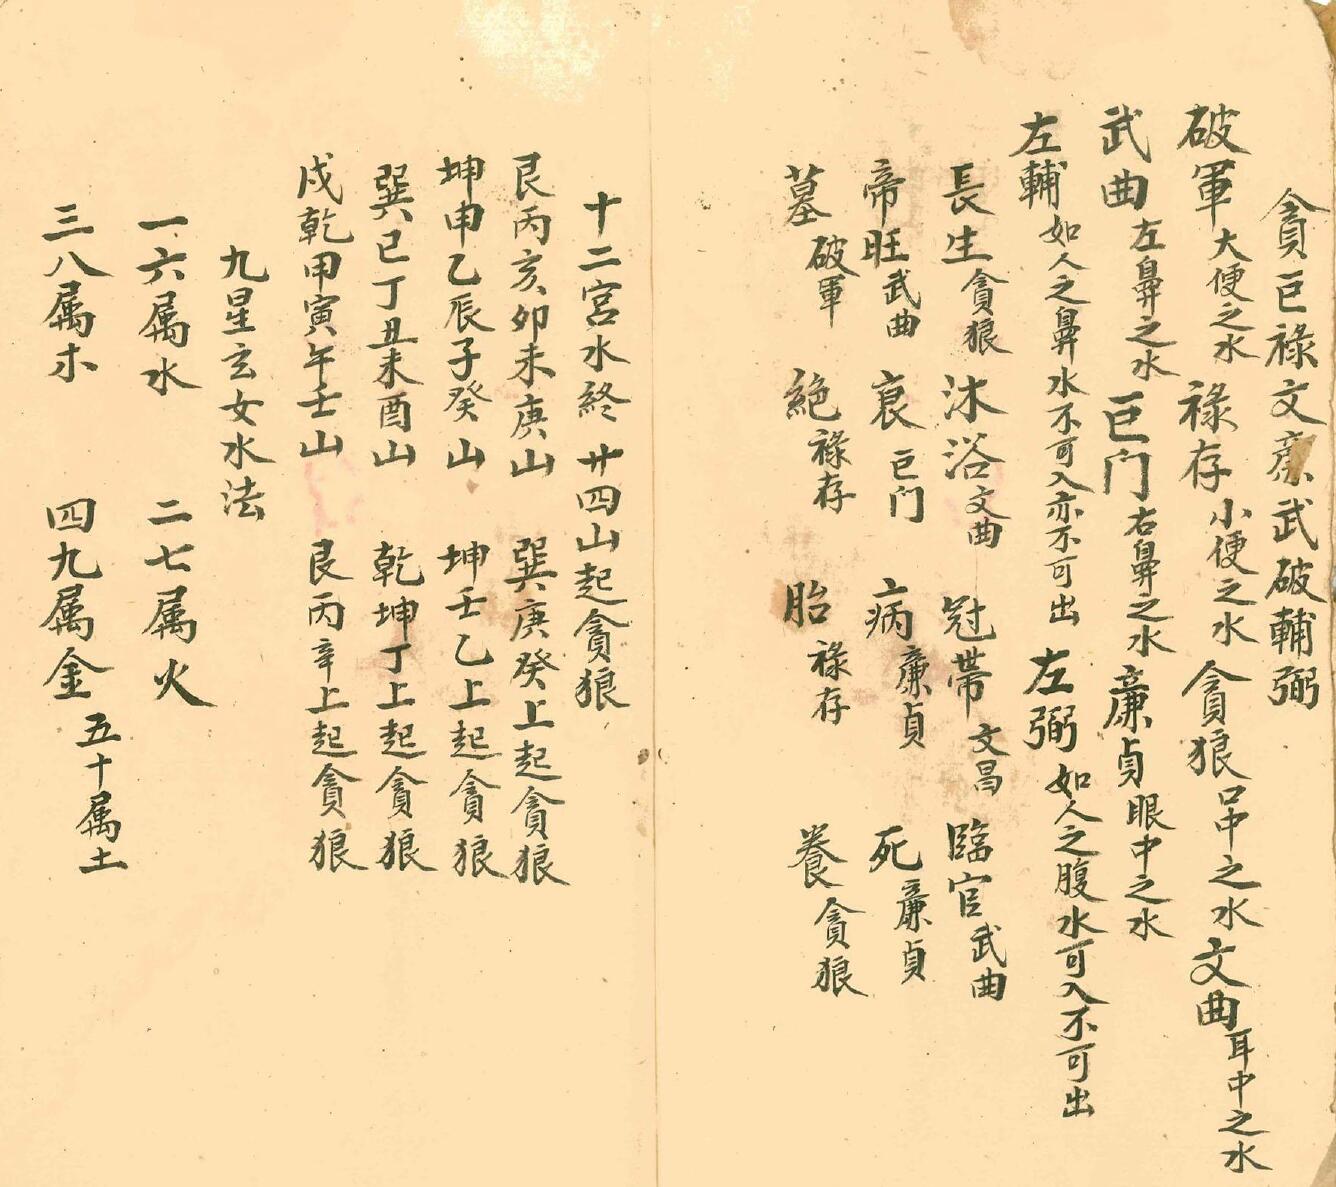 貪巨祿文廉武破輔弼
破軍大便之水 祿存小便之水 貪狼口中之水 文曲耳中之水
武曲左鼻之水 巨门右鼻之水 廉貞眼中之水
左輔如人之鼻水不可入亦不可出 左弼如人之腹水可入不可出
長生貪狼 沐浴文曲 冠帶文昌 臨官武曲
帝旺武曲 衰巨门 病廉貞 死廉貞
墓破軍 絕祿存 胎祿存 養貪狼
十二宮水終 廿四山起貪狼
艮丙亥卯未庚山 巽庚癸上起貪狼
坤申乙辰子癸山 坤壬乙上起貪狼
巽巳丁丑未酉山 乾坤丁上起貪狼
戍乾甲寅午壬山 艮丙辛上起貪狼
九星玄女水法
一六属水 二七属火
三八属木 四九属金 五十属土